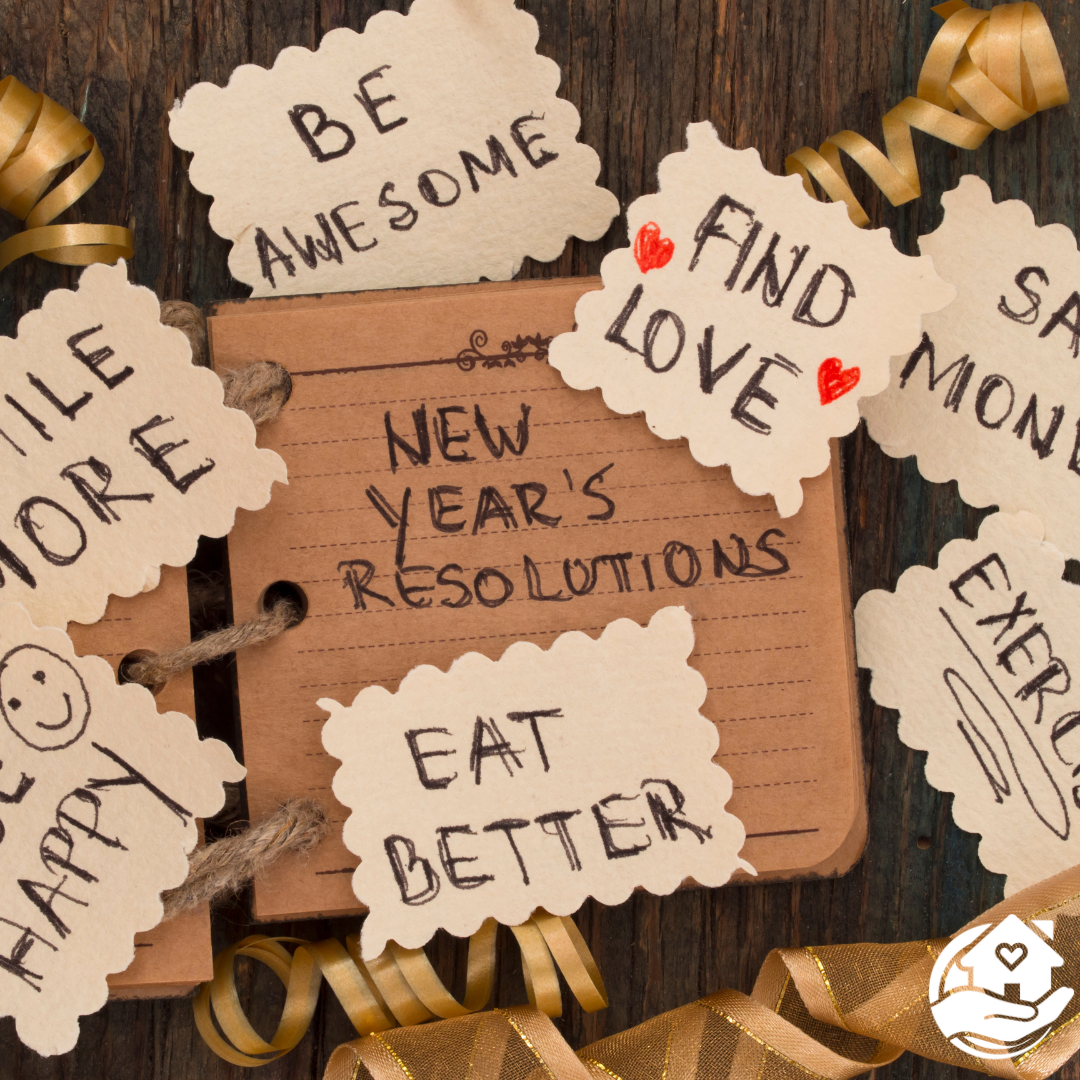 BE
AWESOME
FIND
LOVE
SA
MONE
ILE
MORE
NEW
YEAR'S
RESOLUTIONS
EXERC
EAT
BETTER
HAPPY